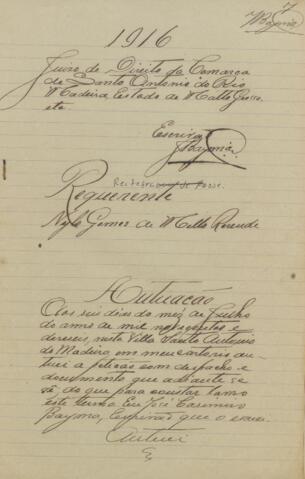 1916
Juizo de Direito da Comarca
de Santo Antonio do Rio
Madeira Estado de Matto Grosso
etc
Escrivão
JBayma
Reitegração de Posse.
Requerente
Gomes de Mello Rezende
Autuação
Aos seis dias do mez de Julho
do anno de mil novecentos e
deseseis, nesta Villa Santo Antonio
do Madeira, em meu cartorio au-
tuei a petição com despacho e
documento que adiante se
vê do que para constar lavro
este termo. Eu José Casimiro
Bayma, Escrivão que o escrevi
Autuei